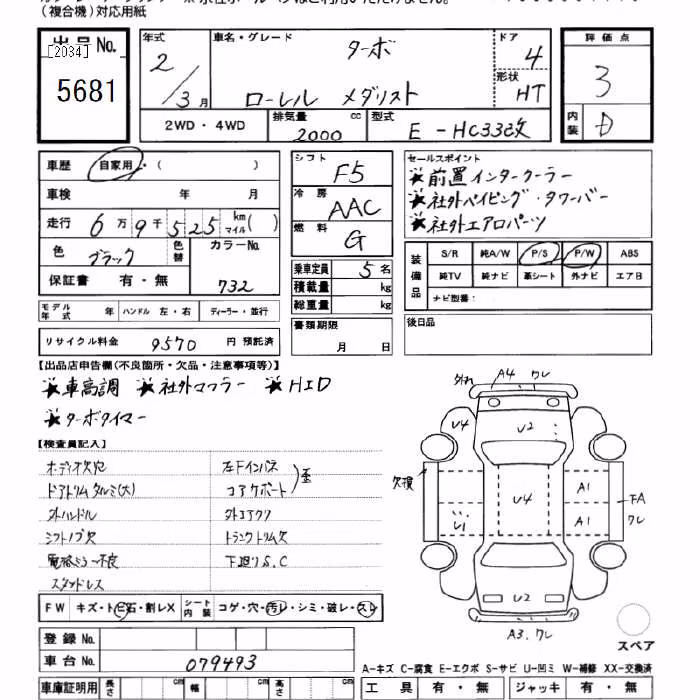 (複合機)対応用紙
出品No.
[2034]
5681
年式
2
3月
車名・グレード
ターボ
ローレル メダリスト
ドア
4
形状
HT
2WD・4WD
排気量
2000 cc
型式
E-HC33改
評価点
3
内装
D
車歴 自家用・( )
車検 年 月
走行 6万9千525 km マイル( )
色 ブラック 色替
カラーNo. 732
保証書 有・無
シフト F5
冷房 AAC
燃料 G
乗車定員 5名
積載量 kg
総重量 kg
書類期限
月 日
セールスポイント
★前置インタークーラー
★社外パイピング・タワーバー
★社外エアロパーツ
装備品
S/R 純A/W P/S P/W ABS
純TV 純ナビ 革シート 外ナビ エアB
ナビ型番:
後日品
モデル年式 年 ハンドル 左・右 ディーラー・並行
リサイクル料金 9570 円 預託済
【出品店申告欄(不良箇所・欠品・注意事項等)】
★車高調 ★社外マフラー ★HID
★ターボタイマー
【検査員記入】
オーディオ欠穴
ドアトリムタルミ(大)
外ハンドル
シフトノブ欠
電格ミラー不良
スタッドレス
左Fインパネ
コアサポート
歪
外エアクリ
トランクトリム欠
下廻りS.C
FW キズ・トビ石・割レX
シート内装 コゲ・穴・汚レ・シミ・破レ・スレ
登録No.
車台No. 079493
車庫証明用 長さ cm 幅 cm 高さ cm
外れ A4 ワレ
U4 U2
欠損
U4 A1
U1 A1
FA
ワレ
U2
A3.ワレ
スペア
A-キズ C-腐食 E-エクボ S-サビ U-凹ミ W-補修 XX-交換済
工具 有・無 ジャッキ 有・無